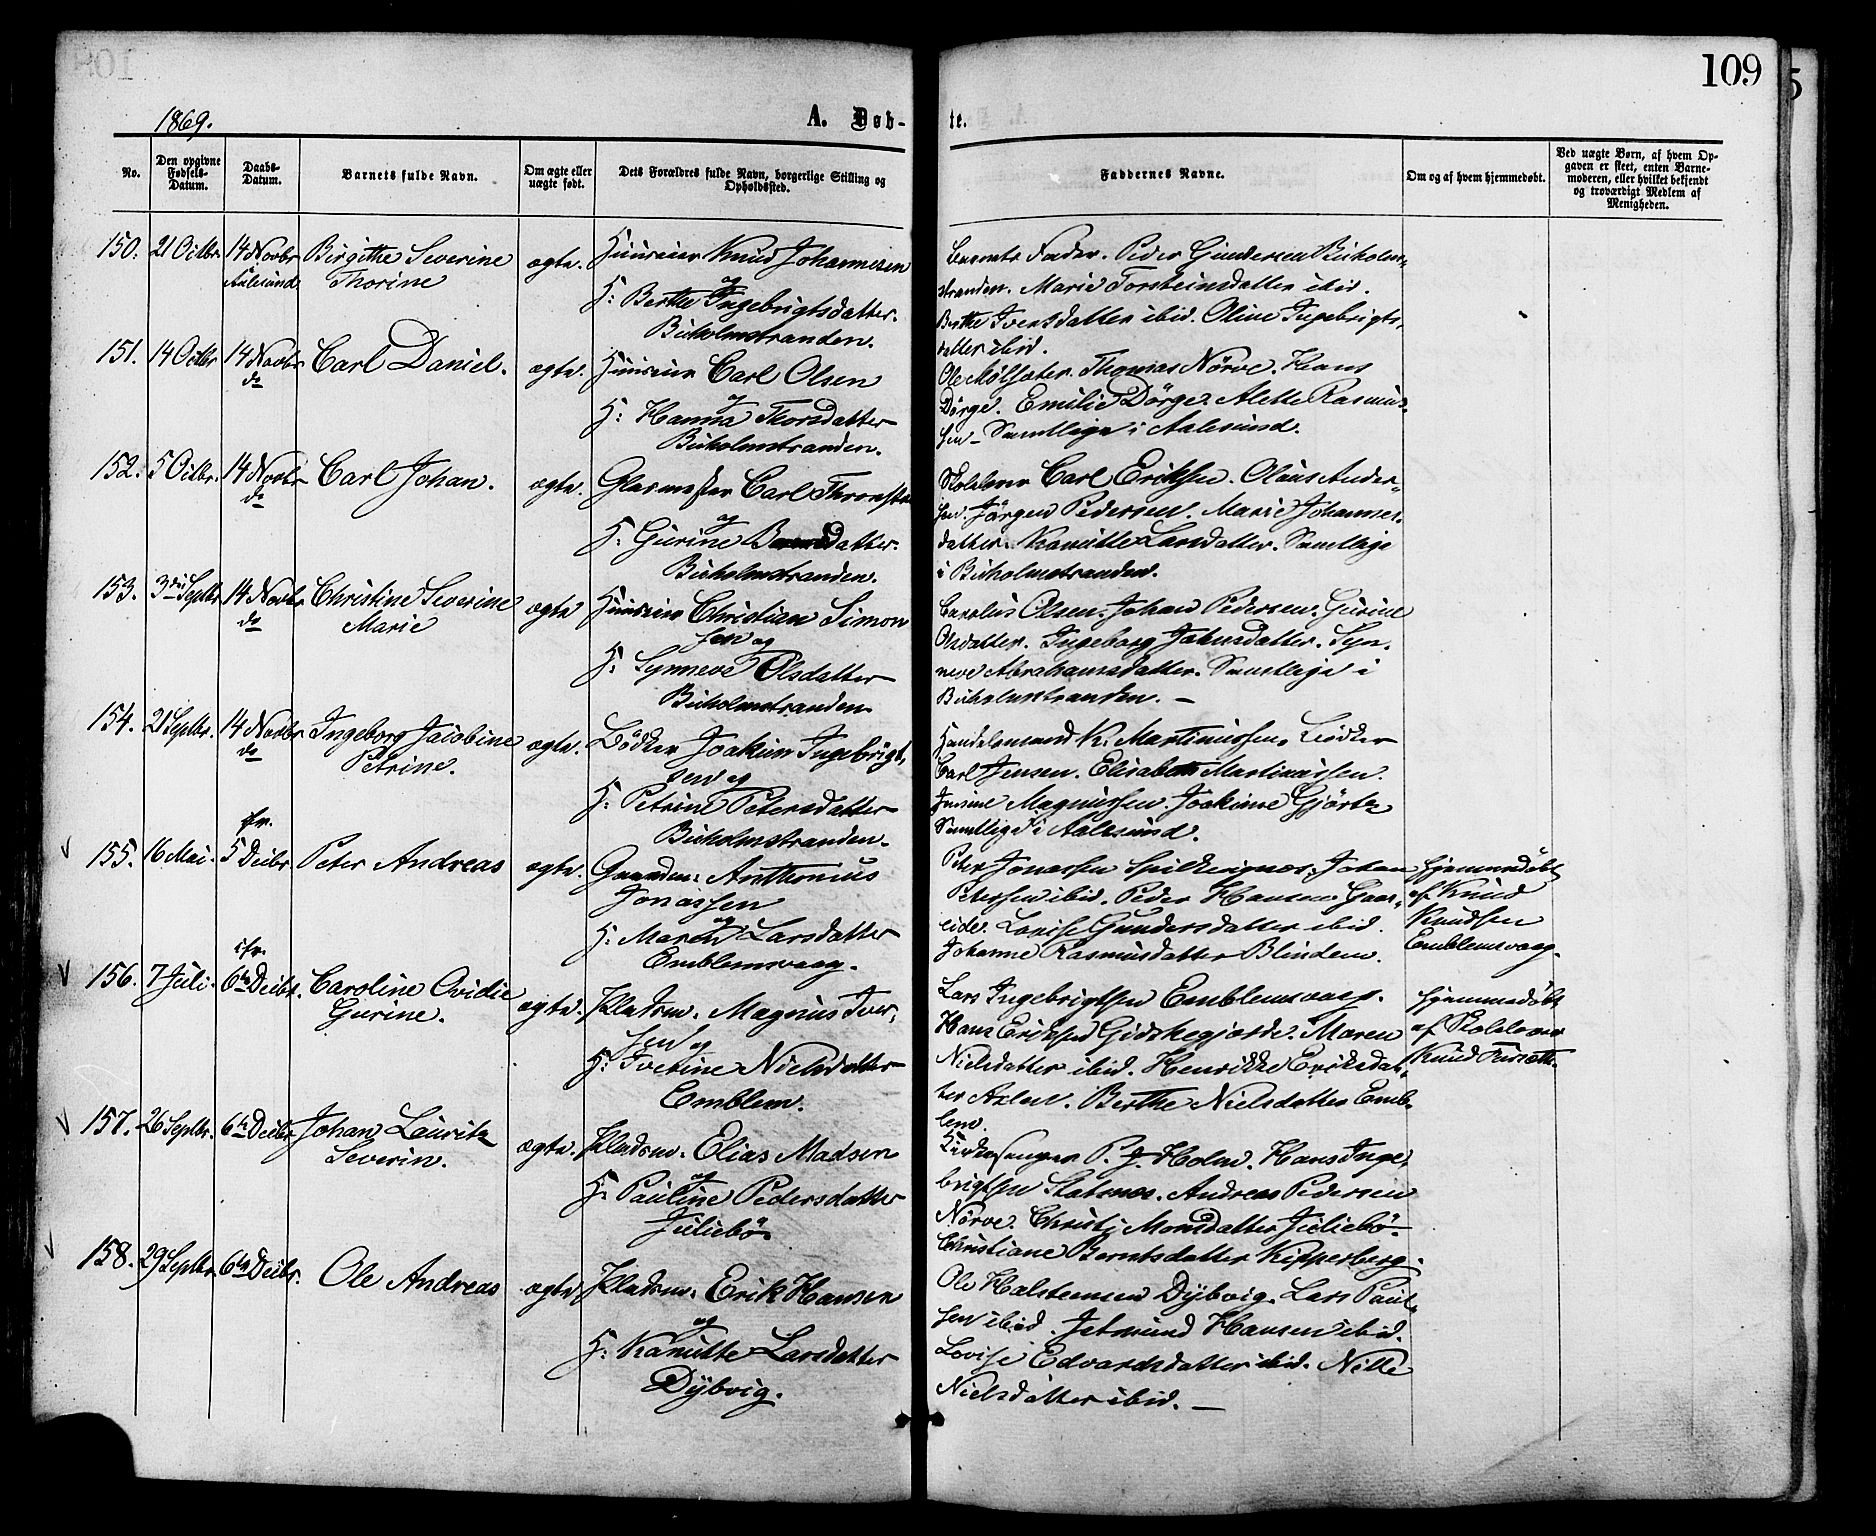 109
1869.
A. Døb-
te.
No.
Den opgivne Fødsels-Datum.
Daabs-Datum.
Barnets fulde Navn.
Om ægte eller uægte født.
Dets Forældres fulde Navn, borgerlige Stilling og Opholdssted.
Faddernes Navne.
Om og af hvem hjemmedøbt.
Ved uægte Børn, af hvem Opgaven er skeet, enten Barnemoderen, eller hvilket bekjendt og troværdigt Medlem af Menigheden.
150. 21 Octbr. 14 Novbr Birgithe Severine ægte. Huuseier Knud Johannesen
Aalesund Thorine og
H: Berthe Ingebrigtsdatter.
Buholmstranden.
Barnets Fader. Peder Gundersen Buholm-
stranden. Marie Torsteinsdatter ibid.
Berthe Iversdatter ibid. Oline Ingebrigts-
datter ibid.
151. 14 Octbr 14 Novbr Carl Daniel. ægte. Huuseier Carl Olsen
do og
H: Hanna Thorsdatter
Buholmstranden.
Ole Mölsæter. Thomas Nörve. Hans
Dörge. Emilie Dörge. Alette Rasmus-
sen - Samtlige i Aalesund.
152. 5 Octbr. 14 Novbr Carl Johan. ægte. Glasmester Carl
do og
H: Gurine datter.
Buholmstranden.
Skolelærer Carl Eriksen. Olaus Ander-
sen. Jörgen Pedersen. Marie Johannes-
datter. Kanutte Larsdatter. Samtlige
i Buholmstranden.
153. 3die Septbr 14 Novbr Christine Severine ægte Huuseier Christian Simon
do Marie sen og
H: Synneve Olsdatter
Buholmstranden
Carolus Olsen. Johan Pedersen. Gurine
Olsdatter. Ingeborg Johnsdatter. Syn-
neve Abrahamsdatter. Samtlige i
Buholmstranden. —
154. 21 Septbr. 14 Novbr Ingeborg Jacobine ægte. Bödker Joakim Ingebrigt-
do Petrine. sen og
H: Petrine Petersdatter
Buholmstranden.
Handelsmand K. Martinussen. Bödker
Carl Jensen. Elisabeth Martinussen.
Jensine Magnussen. Joakime Gjörtz
Samtlige i Aalesund.
ifr.
155. 16 Mai. 5 Decbr. Peter Andreas ægte. Gaardm: Anthonius
Jonassen
og
H: Maren Larsdatter
Emblemsvaag.
Peter Jonassen Spilkevignes. Johan
Petersen ibid. Peder Hansen Gaas-
eide. Lovise Gundersdatter ibid.
Johanne Rasmusdatter Blindem.
Hjemmedöbt
af Knud
Knudsen
Emblemsvaag.
ifr.
156. 7 Juli. 6te Decbr. Caroline Ovidie ægte. Pladsm. Magnus Iver-
Gurine. sen og
H: Ivetine Nielsdatter
Emblem.
Lars Ingebrigtsen Emblemsvaag.
Hans Eriksen Gidskegjerde. Maren
Nielsdatter ibid. Henrikke Eriksdat-
ter Axlen. Berthe Nielsdatter Emb-
lem.
Hjemmedöbt
af Skolelærer
Knud
157. 26 Septbr. 6te Decbr Johan Lauritz ægte. Pladsm. Elias Madsen
Severin. og
H: Pauline Pedersdatter
Juliebö.
Kirkesanger P. J. Holm. Hans Inge-
brigtsen Slatenes. Andreas Pedersen
Nörve. Christi Monsdatter Juliebö.
Christiane Berntsdatter Kipperberg.
158. 29 Septbr. 6te Decbr. Ole Andreas ægte. Pladsm. Erik Hansen
og
H: Kanutte Larsdatter
Dybvig.
Ole Halstensen Dybvig. Lars Paul-
sen ibid. Jetmund Hansen ibid.
Lovise Edvardsdatter ibid. Nille
Nielsdatter ibid. —